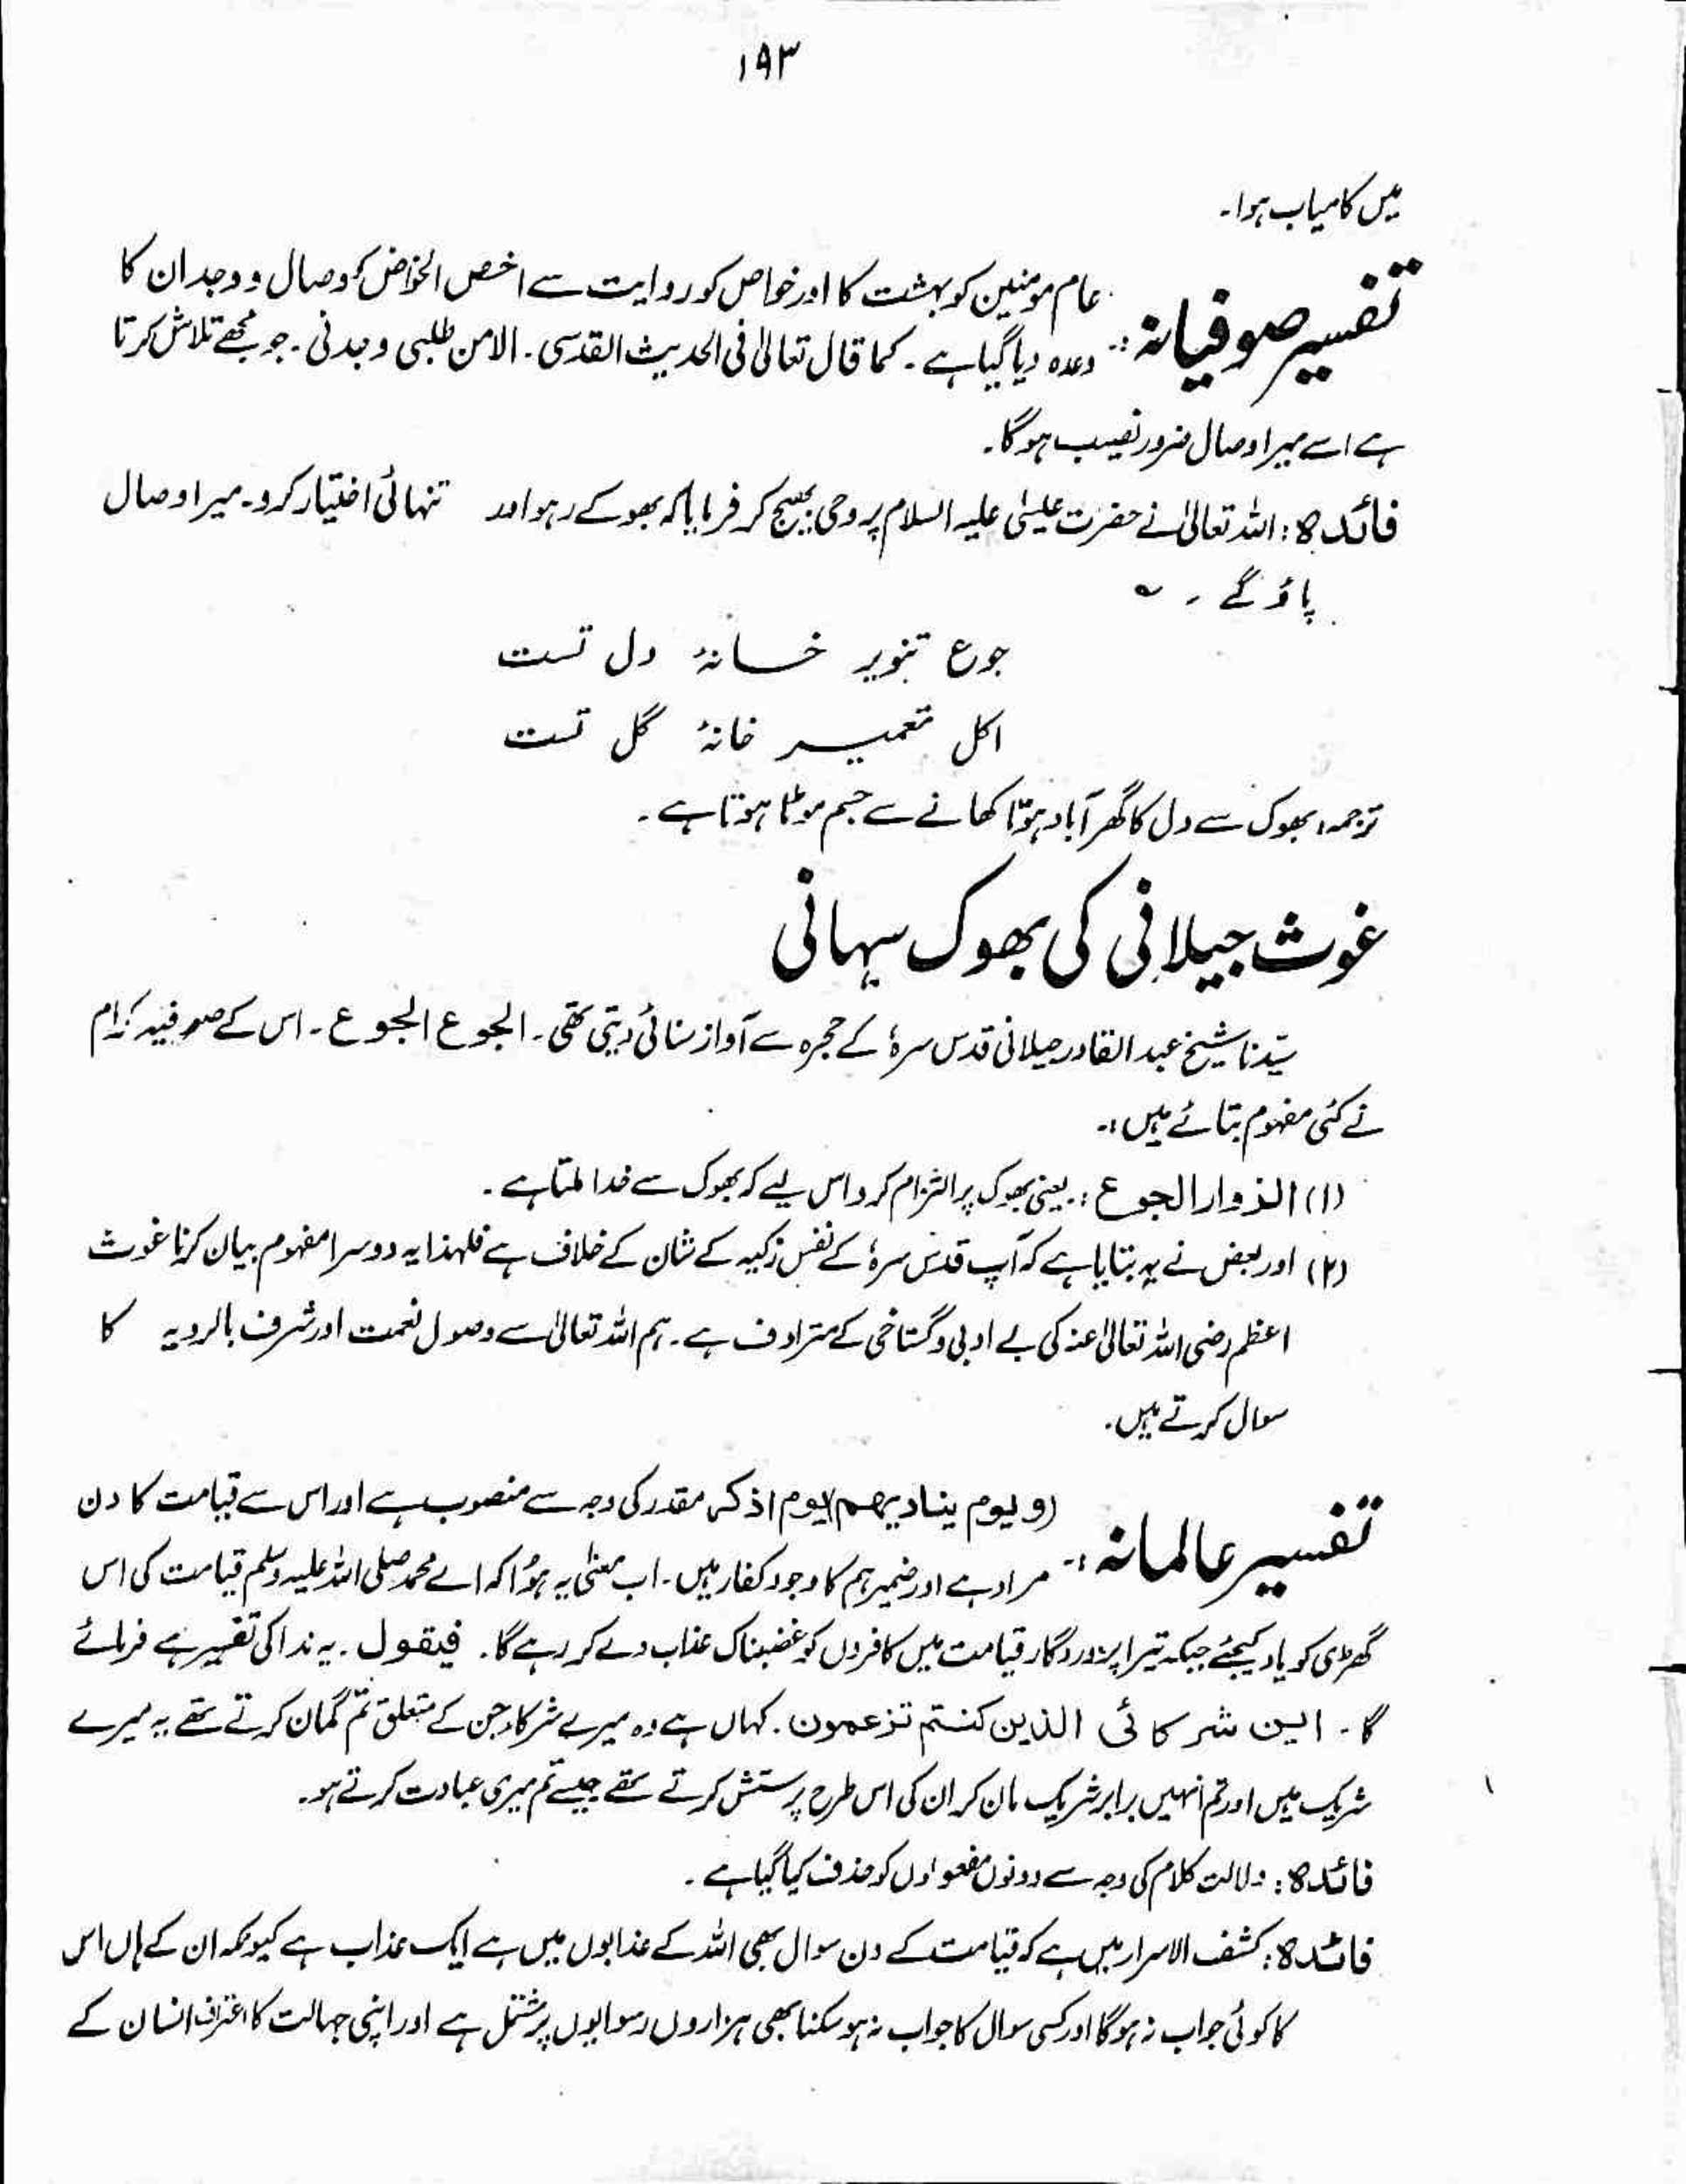 ۱۹۳
میں کامیاب ہوا۔
تفسیر صوفیانہ :۔ عام مومنین کو بہشت کا اور خواص کو روایت سے اخص الخواص کو وصال و وجدان کا
وعدہ دیا گیا ہے ۔ کما قال تعالیٰ فی الحدیث القدسی ۔ الامن طلبی وجدنی ۔ جو مجھے تلاش کرتا
ہے اسے میرا وصال ضرور نصیب ہوگا۔
فائدہ : اللہ تعالیٰ نے حضرت عیسٰی علیہ السلام پر وحی بھیج کر فرمایا کہ بھوکے رہو اور تنہائی اختیار کرو۔ میرا وصال
پاؤ گے ۔ ؎
جوع تنویر خانۂ دل تست
اکل تعمیر خانۂ گل تست
ترجمہ: بھوک سے دل کا گھر آباد ہوتا کھانے سے جسم موٹا ہوتا ہے ۔
غوث جیلانی کی بھوک سہانی
سیّدنا شیخ عبد القادر جیلانی قدس سرہٗ کے حجرہ سے آواز سنائی دیتی تھی ۔ الجوع الجوع ۔ اس کے صوفیہ کرام
نے کئی مفہوم بتائے ہیں :۔
(۱) الذوار الجوع : یعنی بھوک پر التزام کرو اس لیے کہ بھوک سے خدا ملتا ہے ۔
(۲) اور بعض نے یہ بتایا ہے کہ آپ قدس سرہٗ کے نفس زکیہ کے شان کے خلاف ہے فلہذا یہ دوسرا مفہوم بیان کرنا غوث
اعظم رضی اللہ تعالیٰ عنہ کی بے ادبی و گستاخی کے مترادف ہے ۔ ہم اللہ تعالیٰ سے وصول نعمت اور شرف بالرویہ کا
سوال کرتے ہیں ۔
تفسیر عالمانہ :۔ (و یوم ینادیھم) یوم اذکر مقدر کی وجہ سے منصوب ہے اور اس سے قیامت کا دن
مراد ہے اور ضمیر ہم کا وجود کفار ہیں ۔ اب معنٰی یہ ہوُا کہ اے محمد صلی اللہ علیہ وسلم قیامت کی اس
گھڑی کو یاد کیجئے جبکہ تیرا پروردگار قیامت میں کافروں کو غضبناک عذاب دے کر رہے گا ۔ فیقول ۔ یہ ندا کی تفسیر ہے فرمائے
گا ۔ این شرکائی الذین کنتم تزعمون ۔ کہاں ہے وہ میرے شرکاء جن کے متعلق تم گمان کرتے تھے یہ میرے
شریک ہیں اور تم انہیں برابر شریک مان کر ان کی اس طرح پرستش کرتے تھے جیسے تم میری عبادت کرتے ہو ۔
فائدہ : دلالت کلام کی وجہ سے دونوں مفعولوں کو حذف کیا گیا ہے ۔
فائدہ : کشف الاسرار میں ہے کہ قیامت کے دن سوال بھی اللہ کے عذابوں میں ہے ایک عذاب ہے کیونکہ ان کے ہاں اس
کا کوئی جواب نہ ہوگا اور کسی سوال کا جواب نہ ہو سکنا بھی ہزاروں رسوائیوں پر مشتمل ہے اور اپنی جہالت کا اعتراف انسان کے